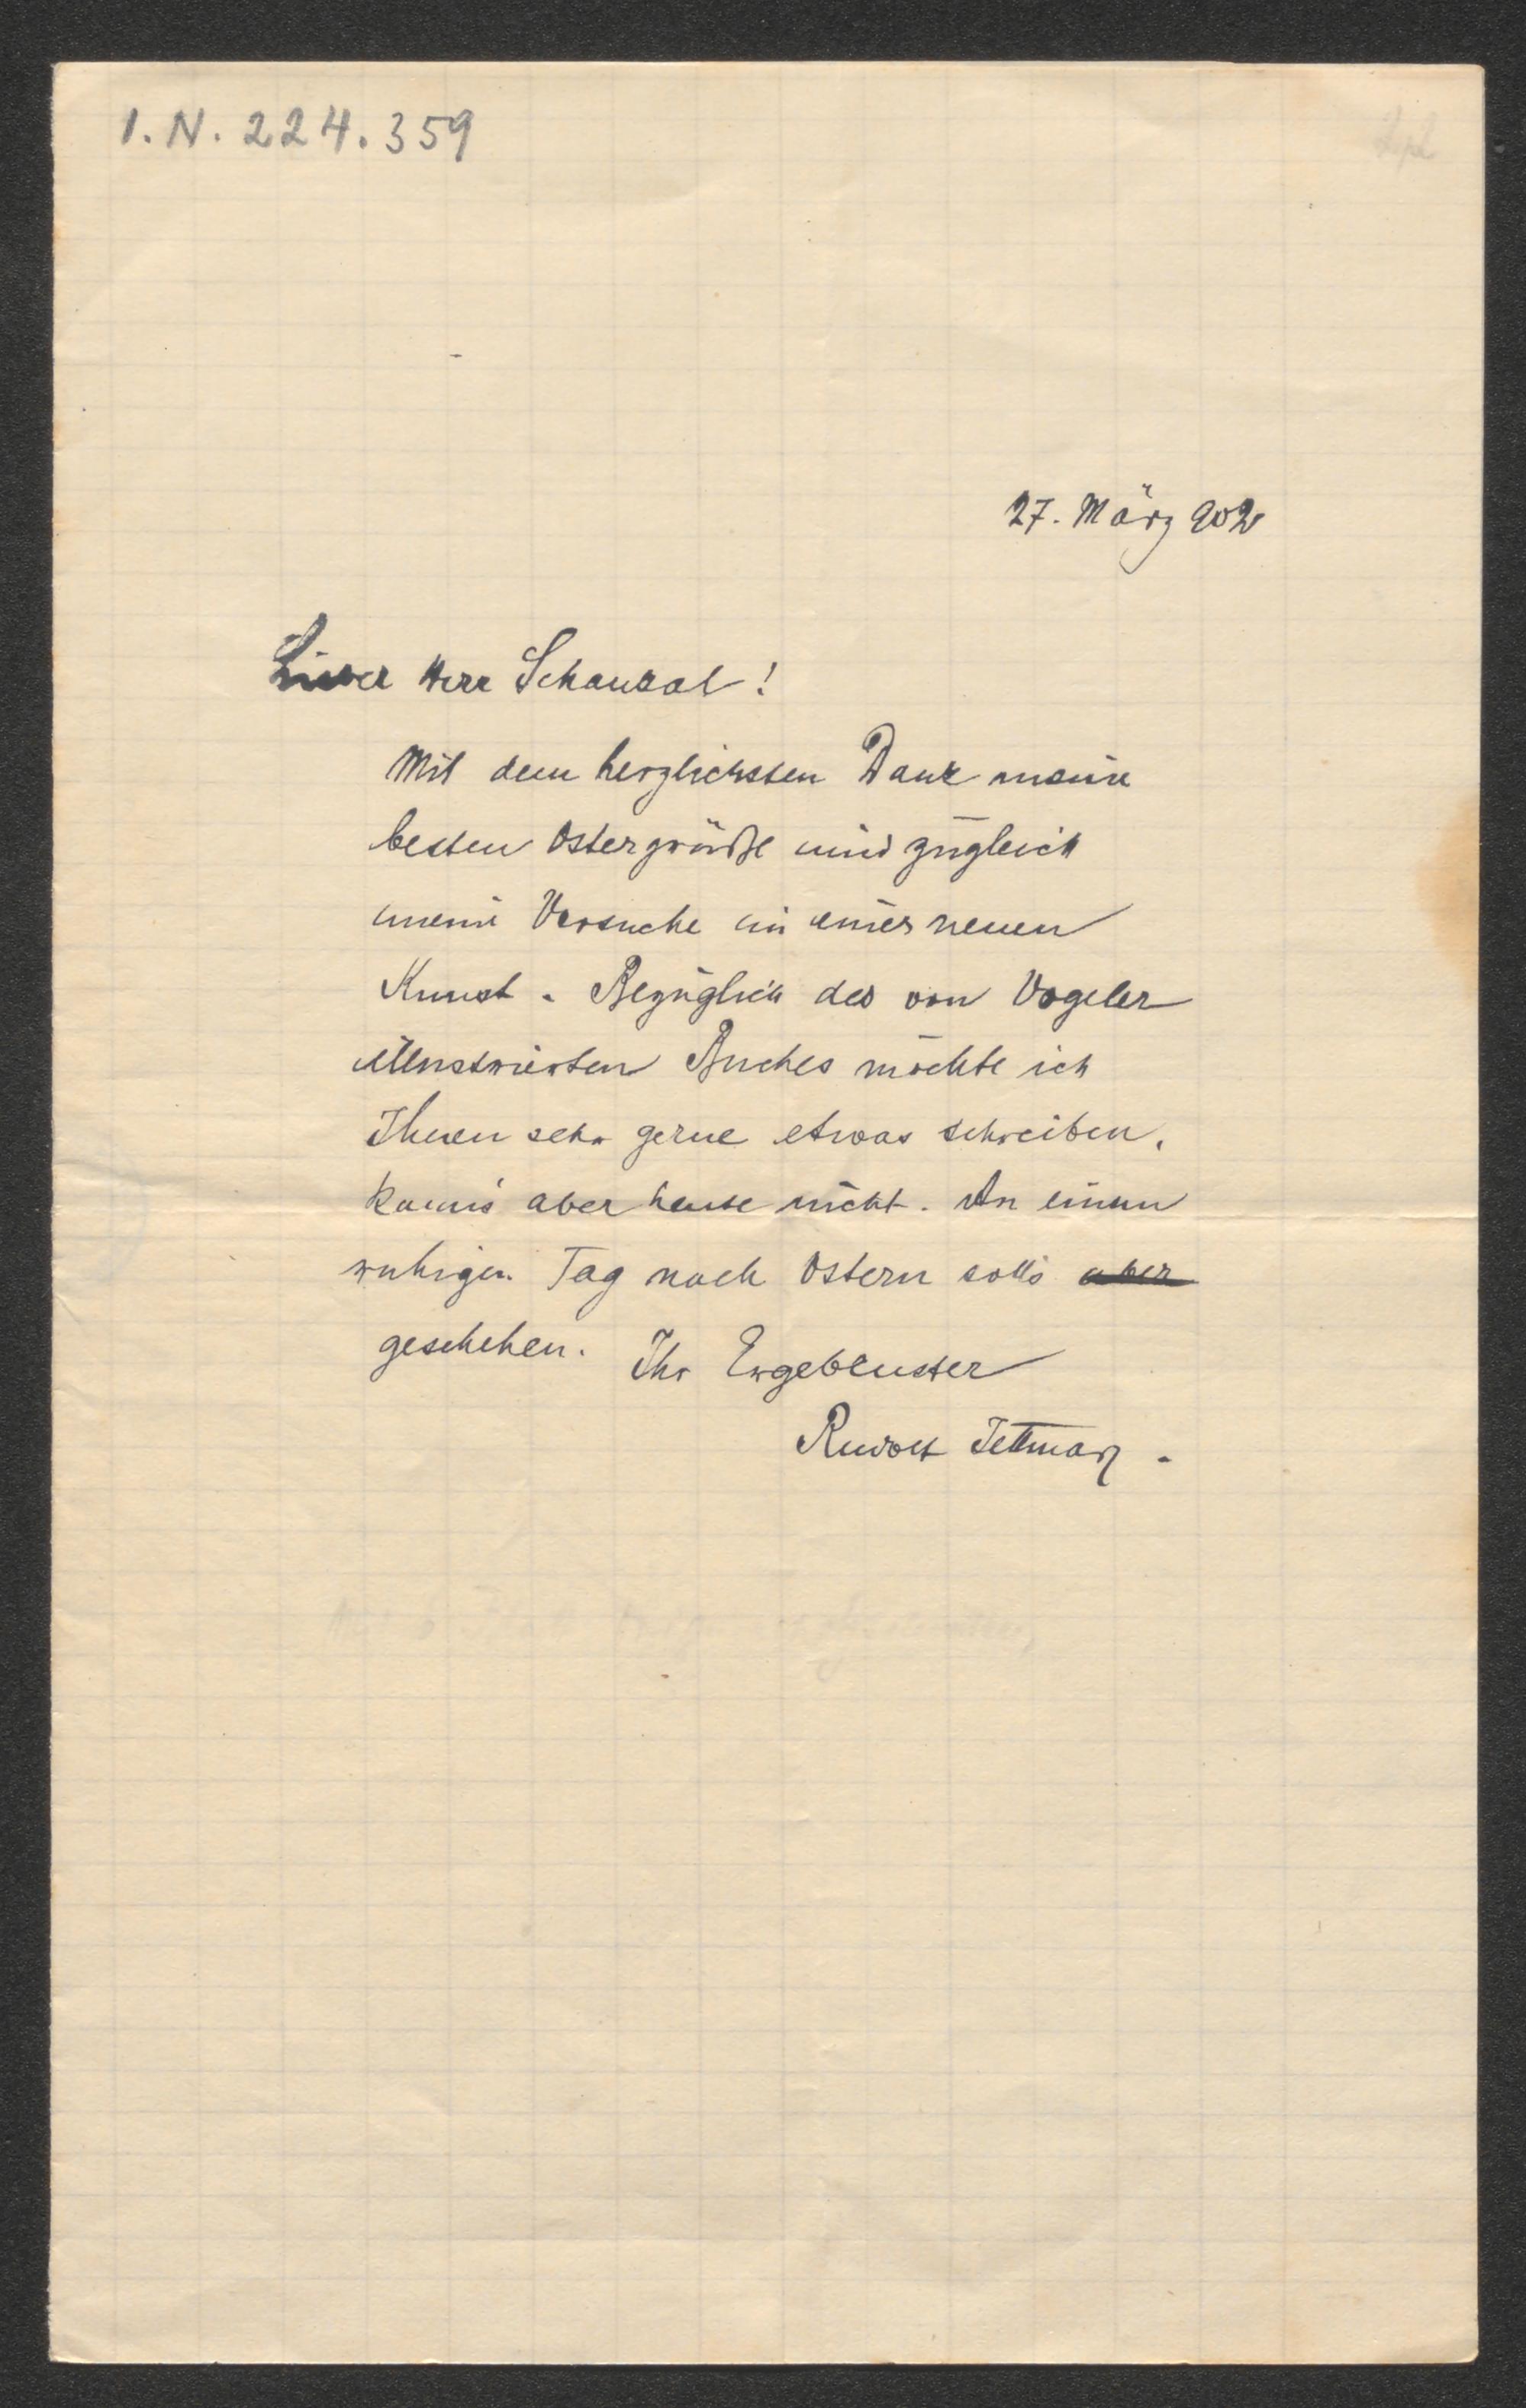 I.N. 224.359
27. März 902
Lieber Herr Schaukal!
Mit dem herzlichsten Dank meine
besten Ostergrüße und zugleich
meine Versuche in einer neuen
Kunst. Bezüglich des von Vogeler
illustrierten Buches möchte ich
Ihnen sehr gerne etwas schreiben,
kann's aber heute nicht. An einem
ruhigen Tag nach Ostern soll's aber
geschehen. Ihr Ergebenster
Rudolf Jettmar.